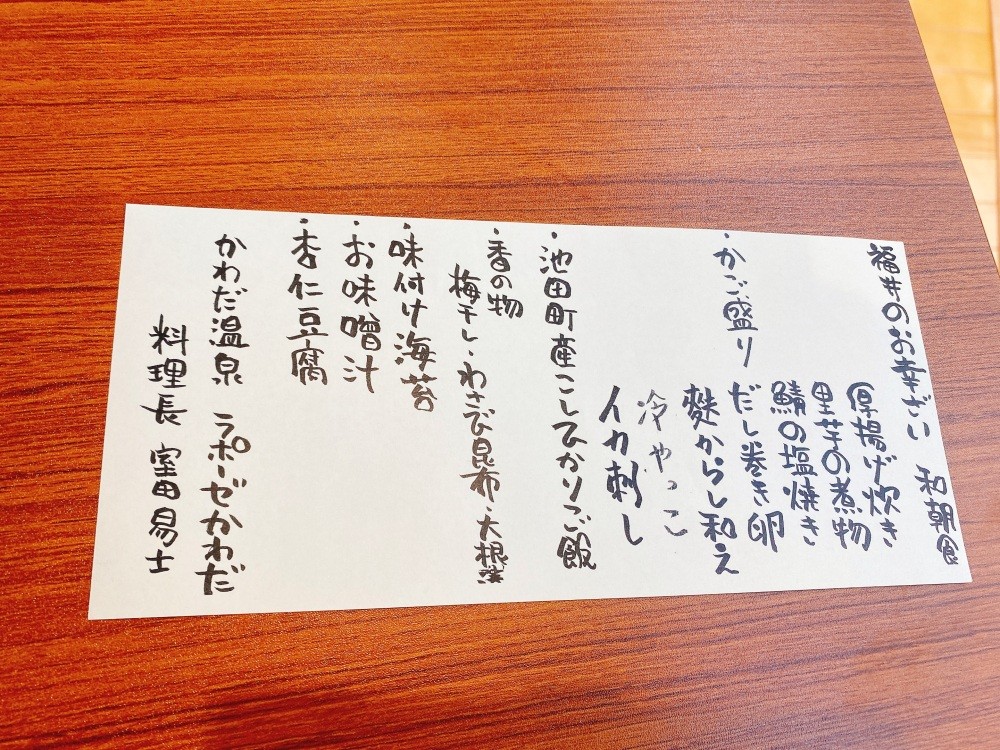 福井のお幸ざい 和朝食
・かご盛り
厚揚げ炊き
里芋の煮物
鯖の塩焼き
だし巻き卵
麩からし和え
冷やっこ
イカ刺し
・池田町産こしひかりご飯
・香の物
梅干し・わさび昆布・大根漬
・味付け海苔
・お味噌汁
・杏仁豆腐
かわだ温泉 ラポーゼかわだ
料理長 室田易士